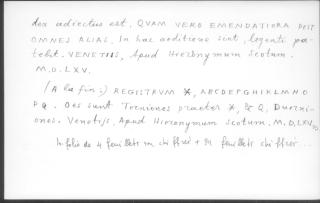 dex adiectus est. QVAM VERO EMENDATIORA POST
OMNES ALIAS, In hac aeditione sint, legenti pa-
tebit. VENETIIS, Apud Hieronymum Scotum.
M.D.LXV.
(A la fin:) REGISTRVM *, ABCDEFGHIKLMNO
PQ. Oes sunt Terniones praeter *, & Q, Duerni-
ones. Venetijs, Apud Hieronymum Scotum. M.D.LXV.
In folio de 4 feuillets non chiffrés + 94 feuillets chiffrés...